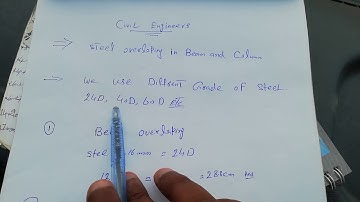 Civil Engineers
→ Steel overlaping in Beam and Column
→ We use Different Grade of Steel
24D, 40D, 60D etc
① Be overlaping
steel 16mm = 24D
12 = = 288cm